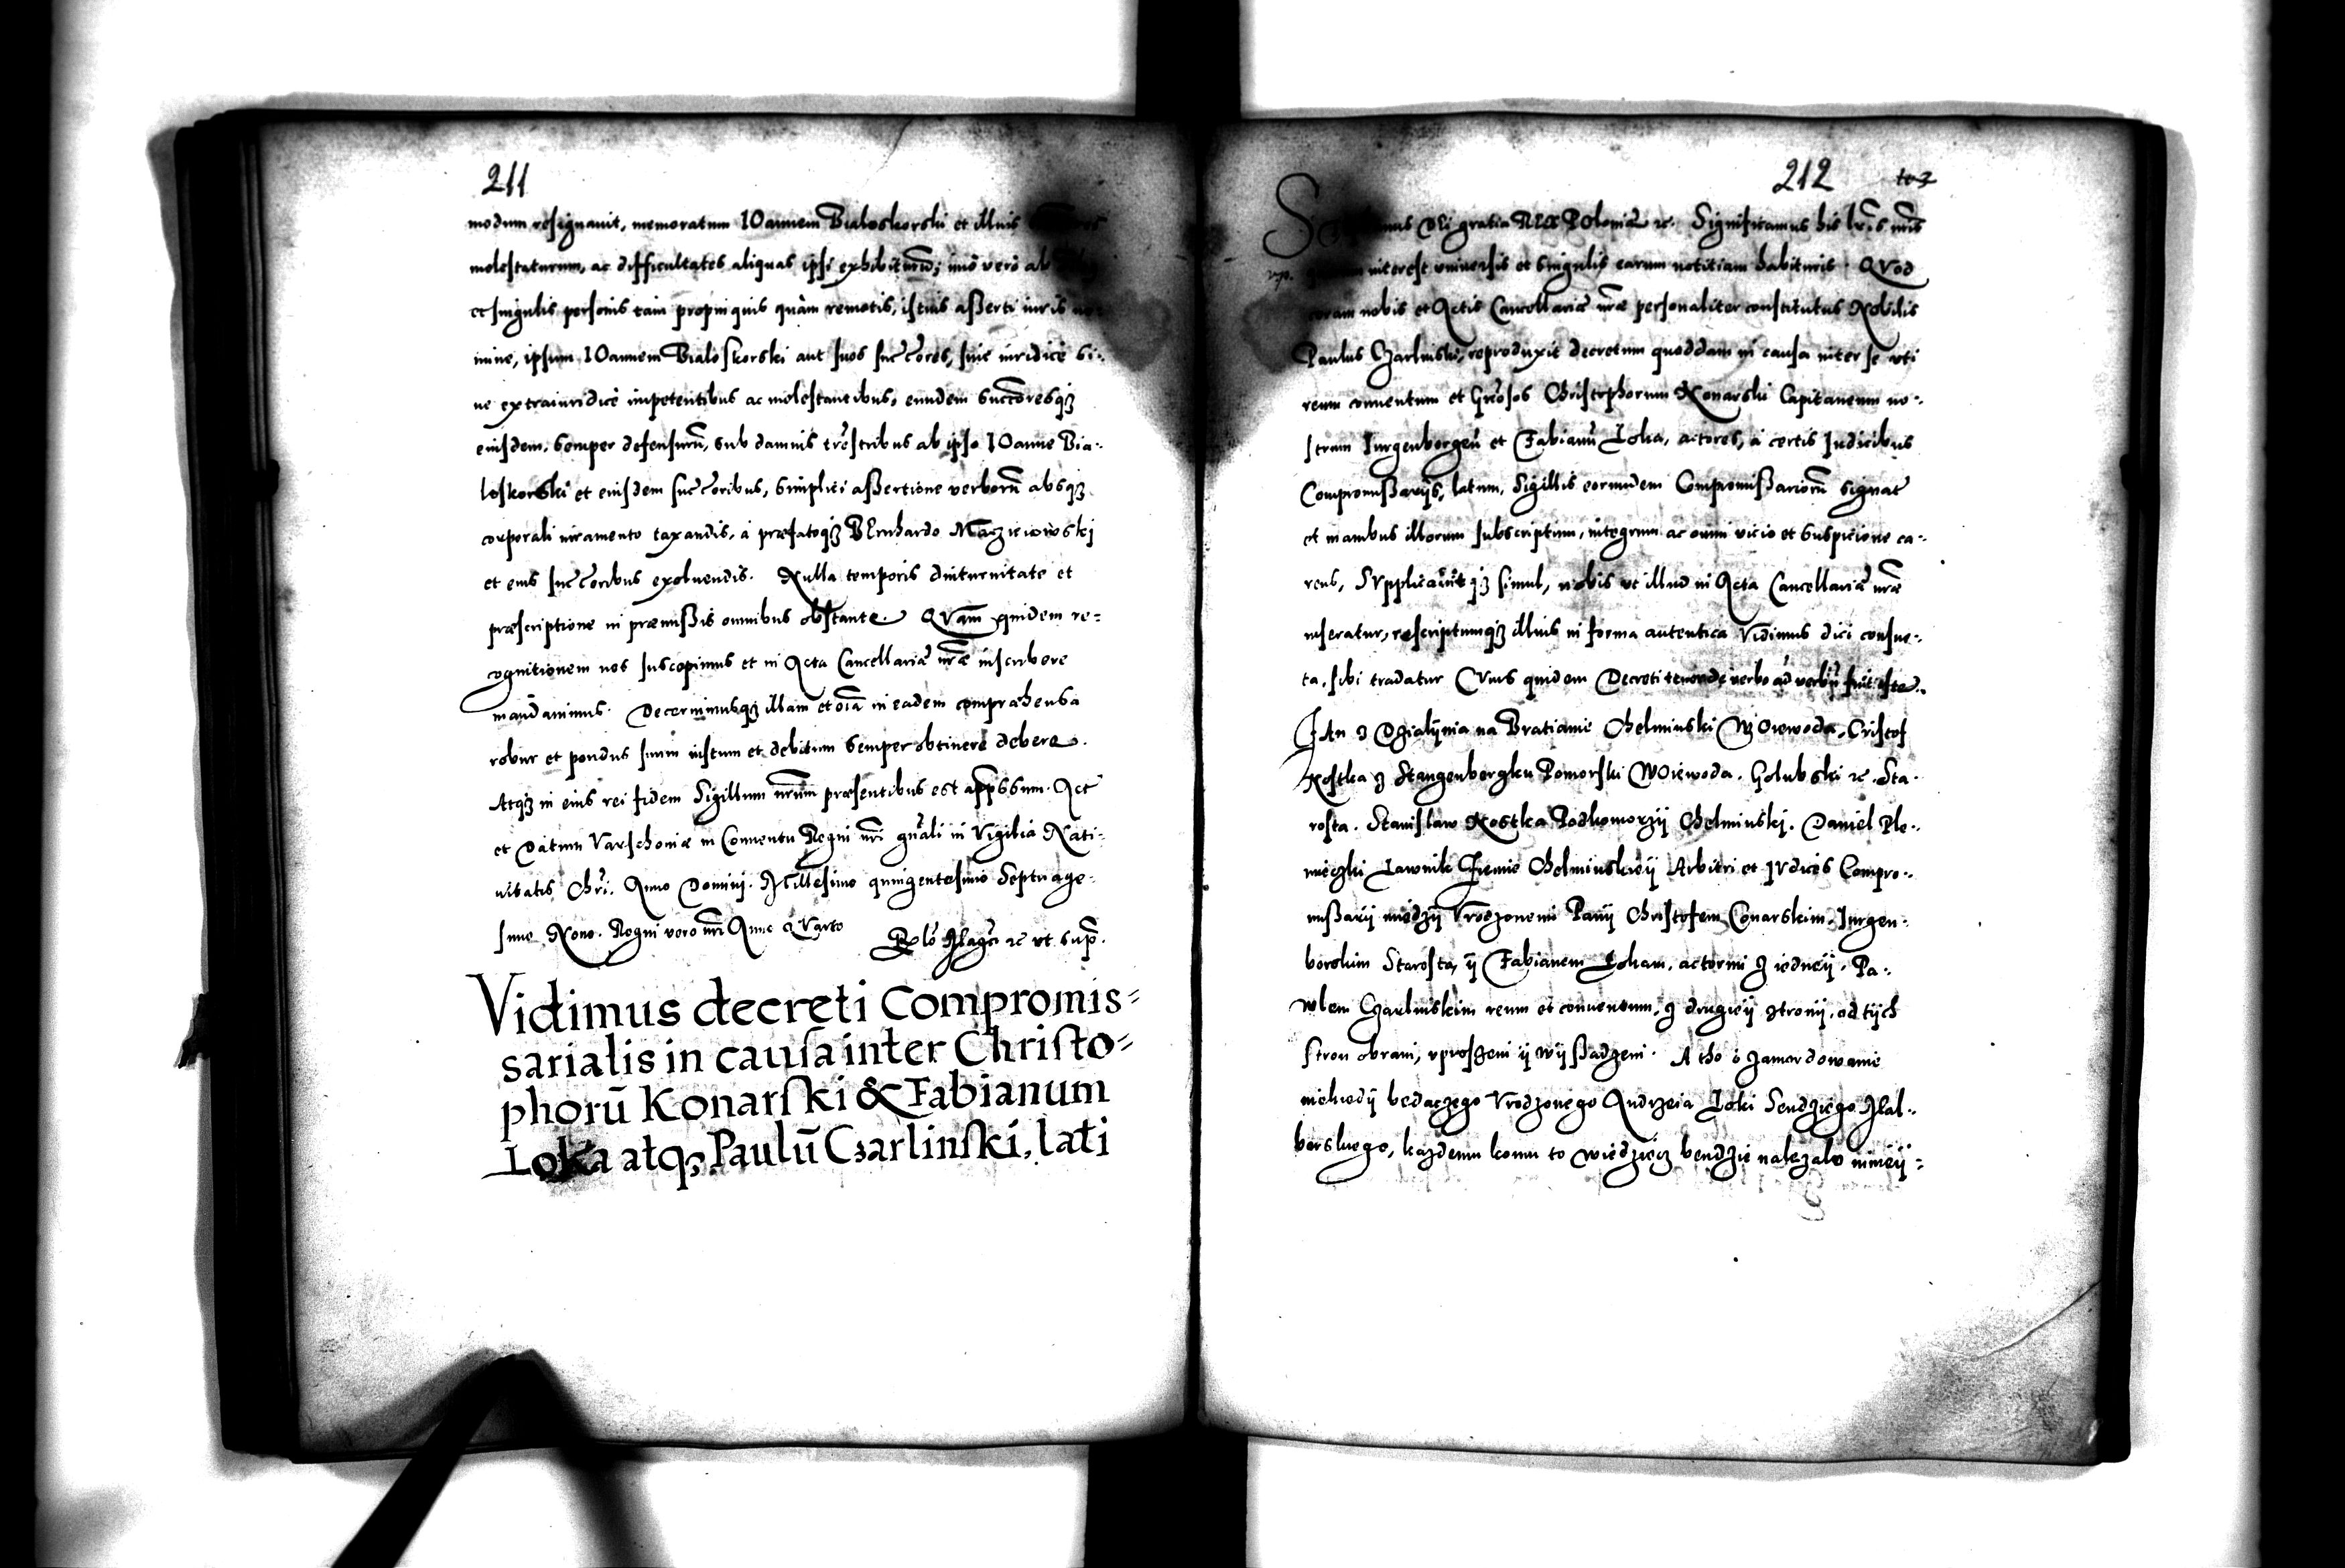 211
modum resignauit, memoratum IOannem Bialoskorski et illius
molestaturum, ac difficultates aliquas ipsi exhibiturū; imò verò ab
et singulis personis tam propinquis quàm remotis, istius aßerti iuris no-
mine, ipsum IOannem Bialoskorski aut suos succēores, siue iuridicè si-
ue extraiuridicè impetentibus ac molestantibus, eundem succōresqz
eiusdem, semper defensurū, sub damnis trēstribus ab ipso IOanne Bia-
loskorski et eiusdem succēoribus, simplici aßertione verborū absqz
corporali iuramento taxandis, à præfatoqz BErnhardo Maczieiowskj
et eius succēoribus exoluendis. Nulla temporis diuturnitate et
præscriptione in præmißis omnibus obstante. QVam quidem re-
cognitionem nos suscepimus et in Acta Cancellariæ nr̄æ inscribere
mandauimus. Decernimusqz illam et oīa in eadem compræhensa
robur et pondus suum iustum et debitum semper obtinere debere.
Atqz in eius rei fidem Sigillum nr̄um præsentibus est app̄ssum. Act
et Datum Varschouiæ in Conuentu Regni nr̄i gn̄ali in Vigilia Nati-
uitatis Chr̄i. Anno Domini. Millesimo quingentesimo Septuage-
simo Nono. Regni vero nr̄i Anno QVarto
ut sup̄.
Vidimus decreti Compromis-
sarialis in causa inter Christo-
phorū Konarski & Fabianum
Loka atqz Paulū Czarlinski, lati
212
Dei gratia REX POloniæ ꝛc. Significamus his lr̄is nr̄is
interest vniuersis et singulis earum notitiam habituris. QVod
coram nobis et Actis Cancellariæ nr̄æ personaliter constitutus Nobilis
Paulus Czarlinski, reproduxit decretum quoddam in causa inter se vti
reum conuentum et Gn̄osos Christophorum Konarski Capitaneum no-
strum Jurgenborgeñ et Fabianū Loka, actores, à certis Judicibus
Compromißarijs, latum, Sigillis eorundem Compromißariorū signat
et manibus illorum subscriptum, integrum ac omni vicio et suspicione ca-
rens, SVpplicauitqz simul, nobis vt illud in Acta Cancellariæ nr̄æ
inseratur, rescriptumqz illius in forma autentica Vidimus dici consue-
ta, sibi tradatur CVius quidem Decreti tenor de verbo ad verbū fuit iste.
JAn z Dzialijnia na Bratianie Chelminski WOiewoda, Cristof
Kostka z Stangenbergku Pomorski WOiewoda. Golubski ꝛc. Sta-
rosta. Stanislaw Kostka Podkomorzij Chelminskj. Daniel Ple-
mięczki Lawnik Ziemie Chelminskieij Arbitri et JVdices Compro-
mißarij międzij Vrodzonemi Panij Christofem Conarskim, Jurgen-
borskim Starostą, ij Fabianem Lokam, actormi z iedneij. Pa-
wlem Czarlinskim reum et conuentum, z drugieij stronij, od tijch
stron obrani, vproszeni ij wijsadzeni. A tho o zamordowanie
niekiedij bedączego Vrodzonego Andrzeia Loki Sendziego Mal-
borskiego, każdemu komu to wiedziecz bendzie nalezalo nineij-